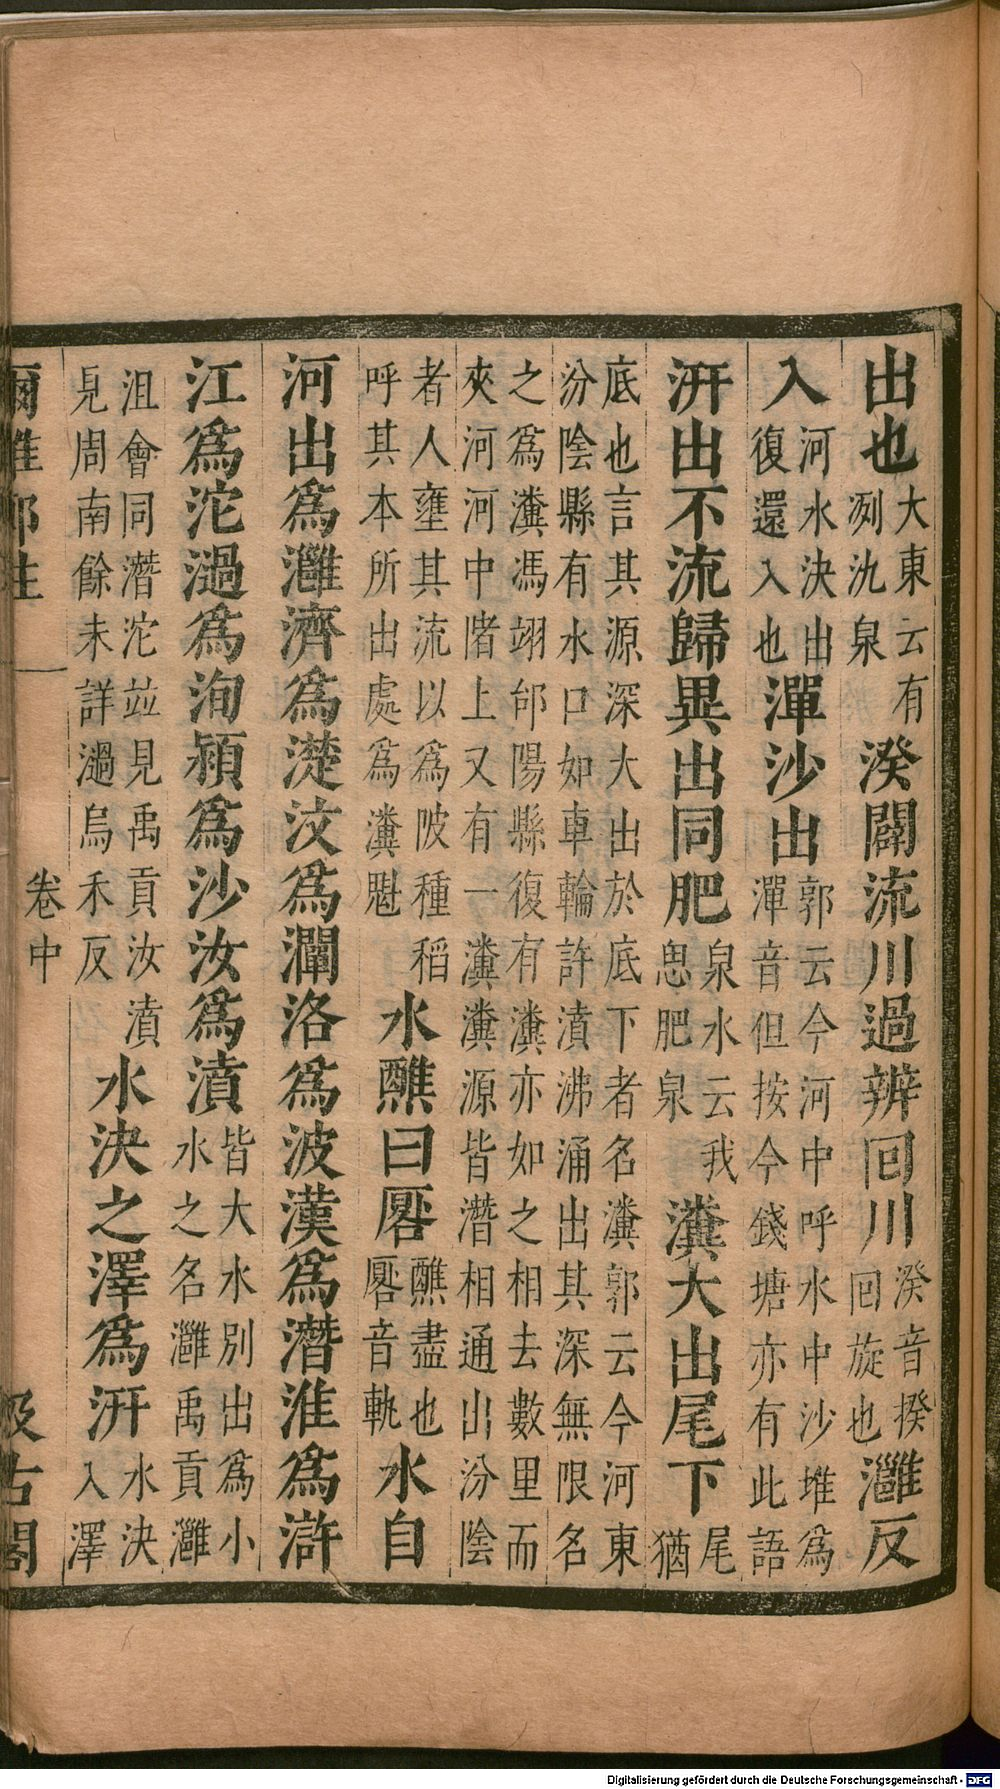 出也大東云有冽氿泉湀闢流川過辨回川湀音揆回旋也灉反
入河水決出復還入也潬沙出郭云今河中呼水中沙堆爲潬音但按今錢塘亦有此語
汧出不流歸異出同肥泉水云我思肥泉瀵大出尾下尾猶
底也言其源深大出於底下者名瀵郭云今河東汾陰縣有水口如車輪許濆沸涌出其深無限名
之爲瀵馮翊郃陽縣復有瀵亦如之相去數里而夾河河中陼上又有一瀵瀵源皆潛相通出汾陰
者人壅其流以爲陂種稻呼其本所出處爲瀵魁水醮曰厬醮盡也厬音軌水自
河出爲灉濟爲濋汶爲灛洛爲波漢爲潛淮爲滸
江爲沱濄爲洵潁爲沙汝爲濆皆大水別出爲小水之名灉禹貢灉
沮會同潛沱竝見禹貢汝濆見周南餘未詳濄烏禾反水決之澤爲汧水決入澤
爾雅郭注 卷中 汲古閣
Digitalisierung gefördert durch die Deutsche Forschungsgemeinschaft - DFG